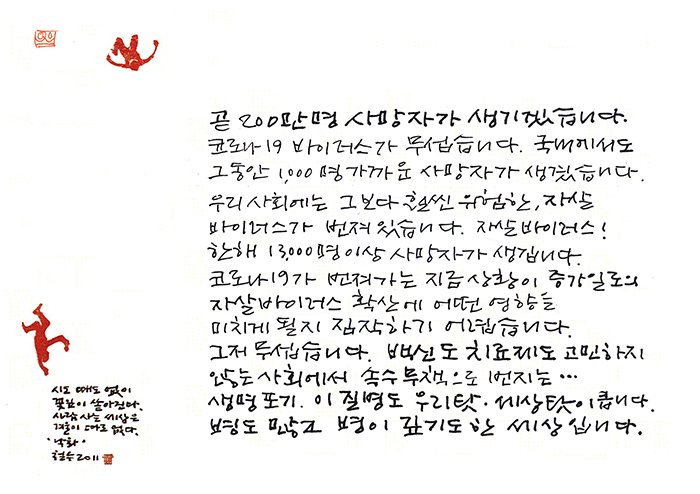 곧 200만명 사망자가 생기겠습니다.
코로나19 바이러스가 무섭습니다. 국내에서도
그동안 1,000명 가까운 사망자가 생겼습니다.
우리 사회에는 그보다 훨씬 위험한, 자살
바이러스가 번져 있습니다. 자살바이러스!
한해 13,000명이상 사망자가 생깁니다.
코로나19가 번져가는 지금 상황이 증가일로의
자살바이러스 확산에 어떤 영향을
미치게 될지 짐작하기 어렵습니다.
그저 무섭습니다. 백신도 치료제도 고민하지
않는 사회에서 속수무책으로 번지는…
생명포기. 이 질병도 우리탓·세상탓이큽니다.
병도 많고 병이 깊기도 한 세상입니다.
시도 때도 없이
꽃잎이 쏟아진다.
사람 사는 세상은
겨울이 따로 없다.
'낙화'
철수 2011